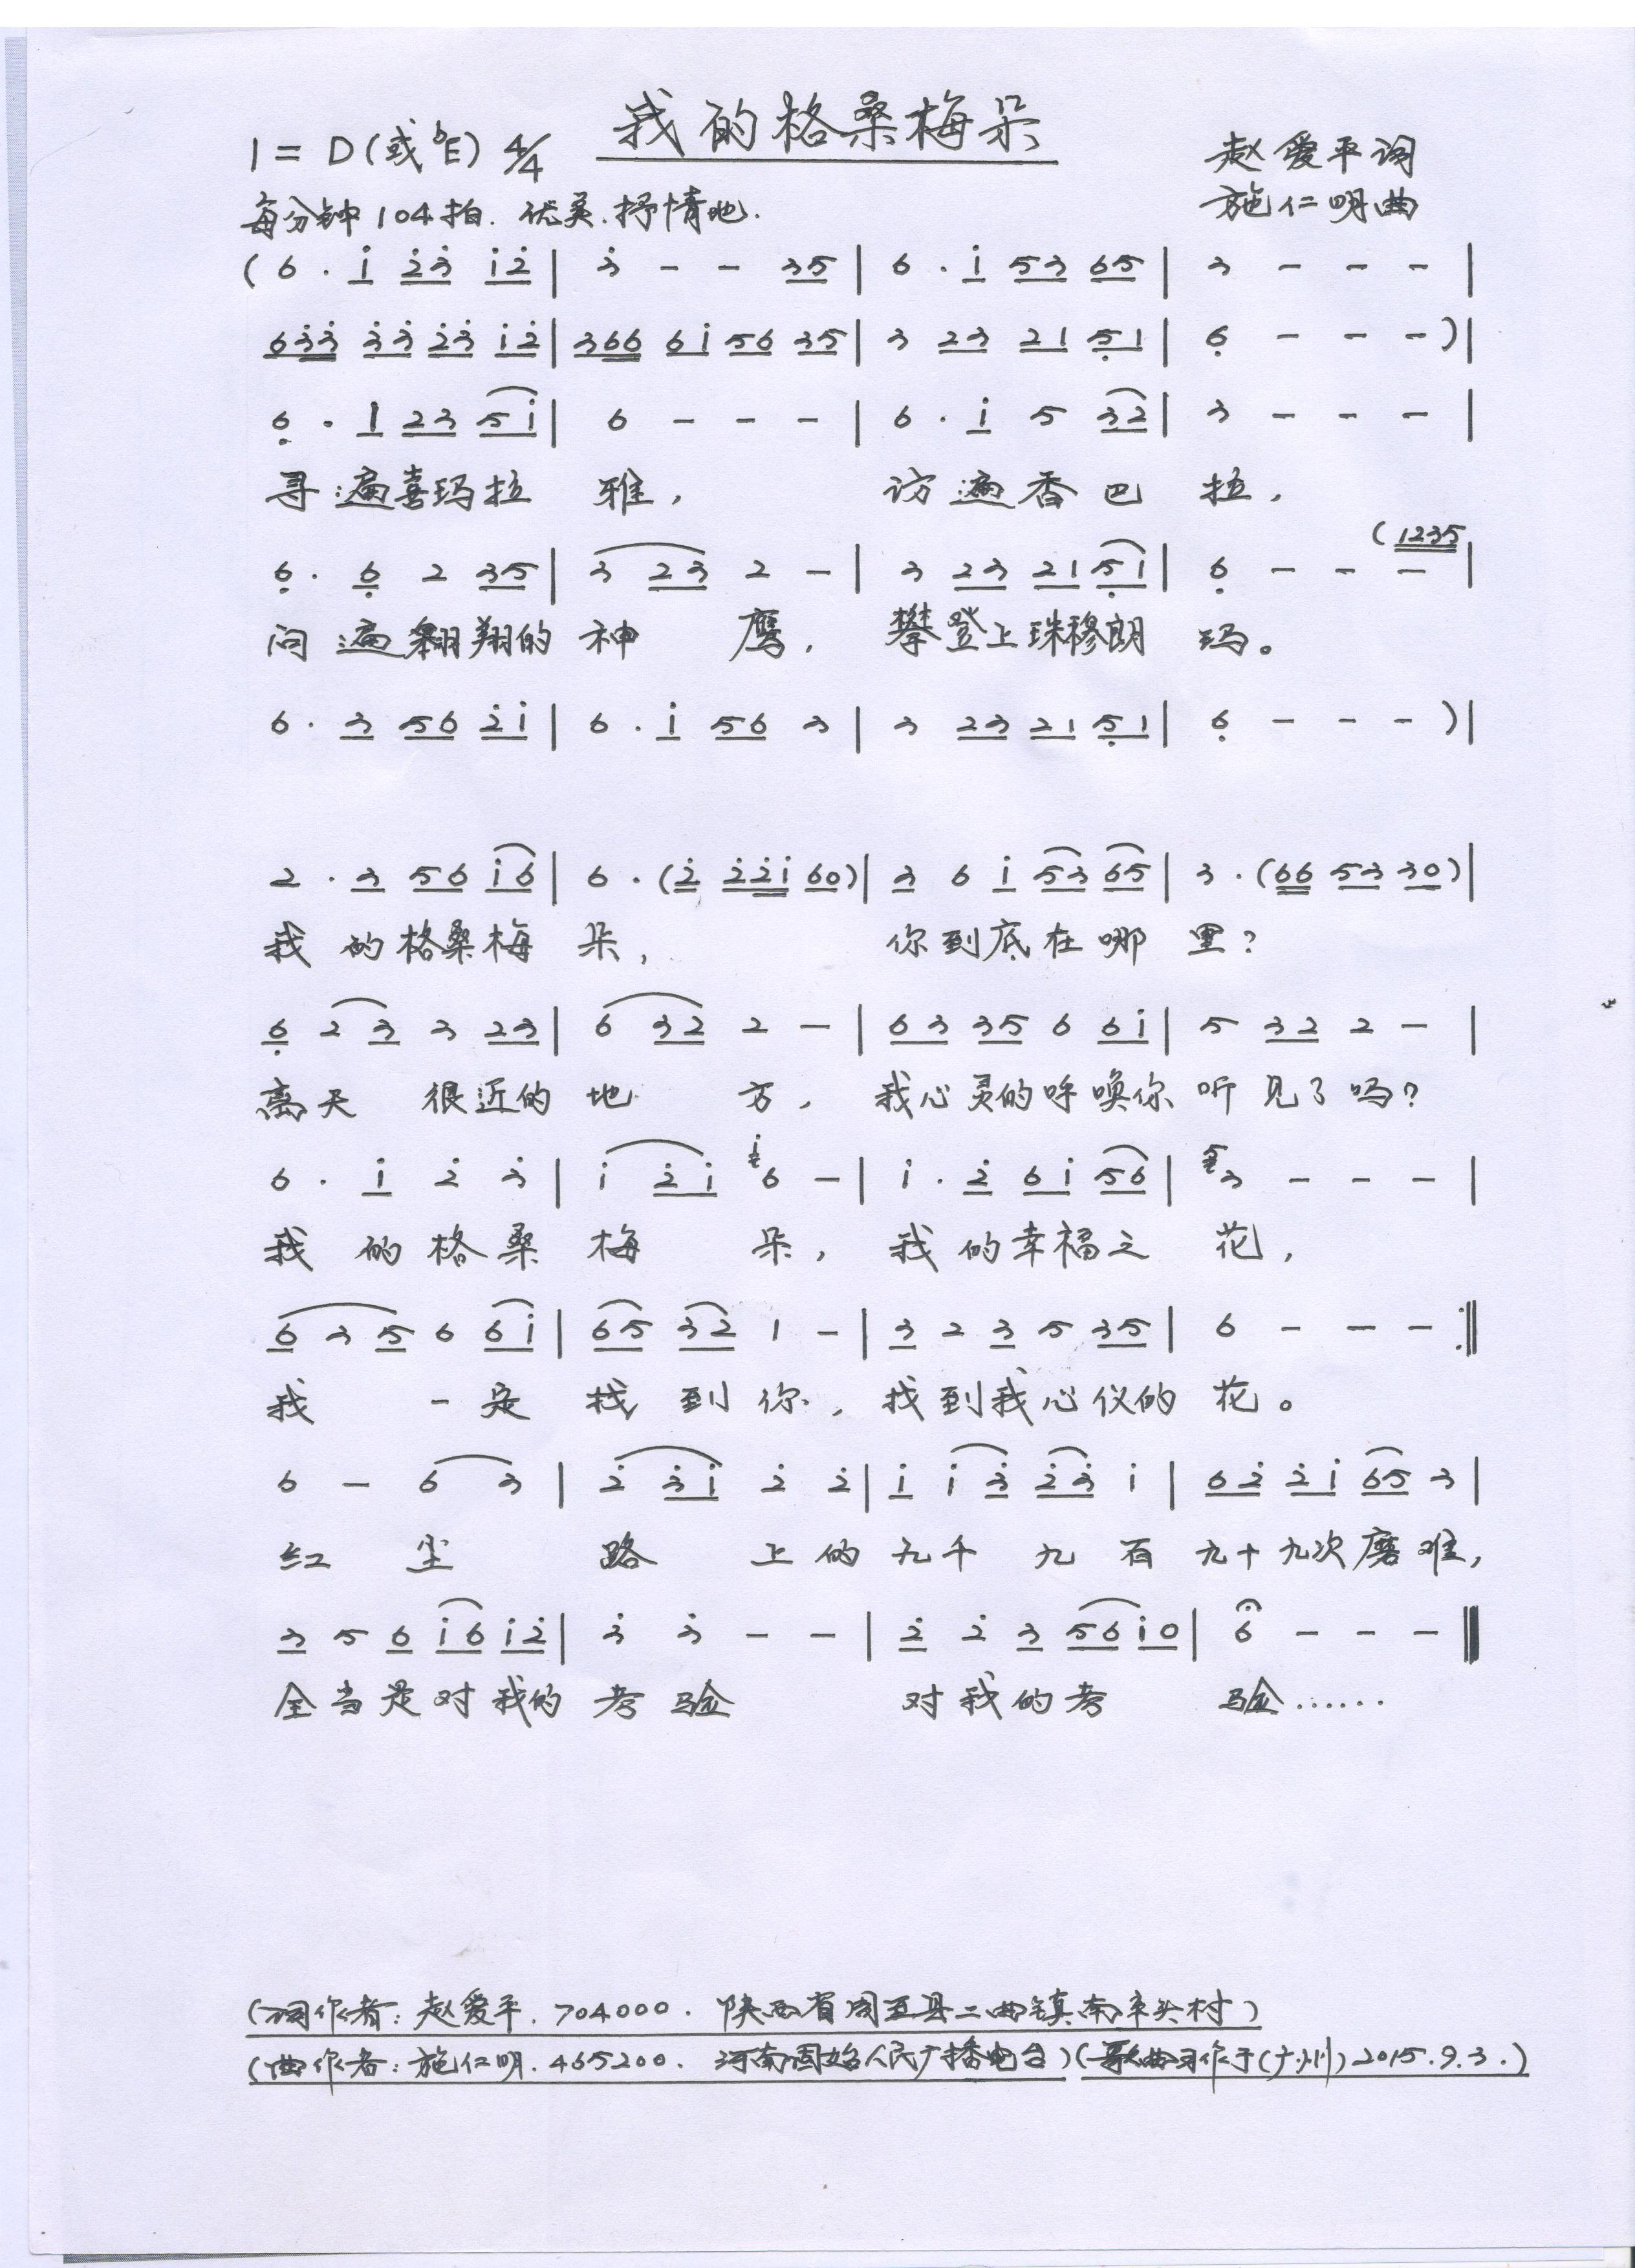 我的格桑梅朵
1 = D(或♭E) 4/4
赵爱平词
每分钟104拍. 优美.抒情地.
施仁明曲
(6 . i̇ 2̇3̇ i̇2̇ | 3̇ - - 35 | 6 . i̇ 53 65 | 3 - - - |
63̇3̇ 3̇3̇ 2̇3̇ i̇2̇ | 366 6i̇ 56 35 | 3 23 21 5̣1 | 6̣ - - - )|
6̣ . 1 23 5i̇ | 6 - - - | 6 . i̇ 5 32 | 3 - - - |
寻遍喜玛拉 雅, 访遍香巴 拉,
(1235
6̣ . 6̣ 2 35 | 3 23 2 - | 3 23 21 5̣1 | 6̣ - - - |
问遍翱翔的 神 鹰, 攀登上珠穆朗 玛。
6 . 3 56 2̇i̇ | 6 . i̇ 56 3 | 3 23 21 5̣1 | 6̣ - - - )|
2 . 3 56 i̇6 | 6 . (2̇ 2̇2̇i̇ 60)| 3 6 i̇ 53 65 | 3 . (66 53 30)|
我的格桑梅 朵, 你到底在哪 里?
6̣ 2 3 3 23 | 6 32 2 - | 63 35 6 6i̇ | 5 32 2 - |
离天 很近的 地 方, 我心灵的呼唤你 听见了吗?
6 . i̇ 2̇ 3̇ | i̇ 2̇i̇ i̇6 - | i̇ . 2̇ 6i̇ 56 | 53 - - - |
我的格桑 梅 朵, 我的幸福之 花,
6 3 5 6 6i̇ | 65 32 1 - | 3 2 3 5 35 | 6 - - - :‖
我 一定 找到你, 找到我心仪的 花。
6 - 6 3 | 2̇ 3̇i̇ 2̇ 2̇ | i̇ i̇ 3̇ 2̇3̇ i̇ | 62̇ 2̇i̇ 65 3 |
红 尘 路 上的 九千 九 百 九十九次磨难,
3 5 6 i̇6 i̇2̇ | 3̇ 3̇ - - | 2̇ 2̇ 3 56 i̇0 | 6̇ - - - ‖
全当是对我的 考验 对我的考 验……
(词作者: 赵爱平. 704000. 陕西省周至县二曲镇南辛头村)
(曲作者: 施仁明. 465200. 河南固始人民广播电台)(歌曲习作于(广州)2015.9.3.)